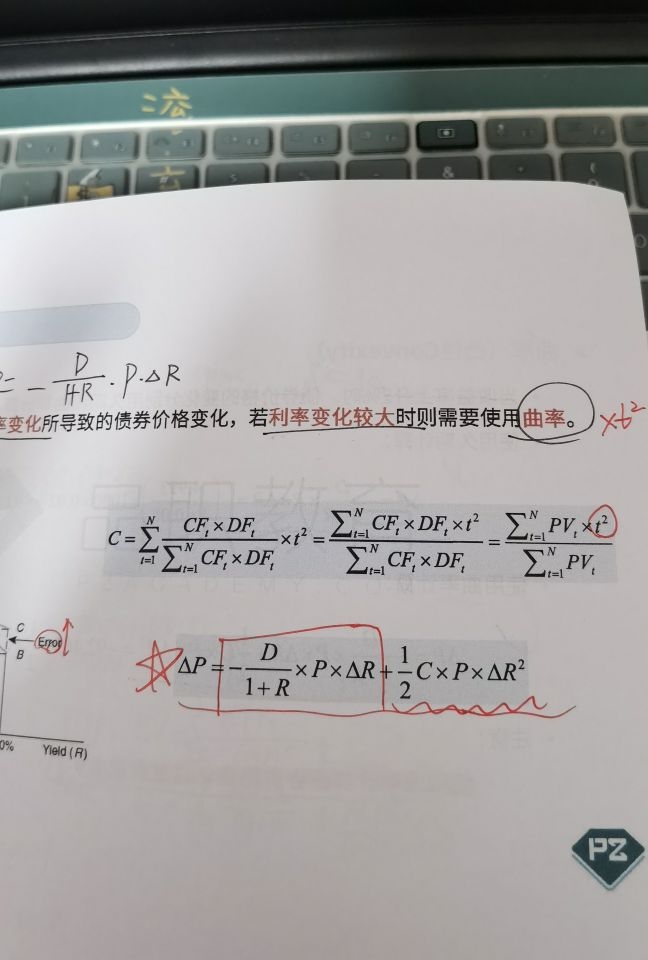 流
= - D/(1+R) · P · ΔR
率变化所导致的债券价格变化，若利率变化较大时则需要使用曲率。 ×t²
C = ∑_{t=1}^{N} (CF_t × DF_t)/(∑_{t=1}^{N} CF_t × DF_t) × t² = (∑_{t=1}^{N} CF_t × DF_t × t²)/(∑_{t=1}^{N} CF_t × DF_t) = (∑_{t=1}^{N} PV_t × t²)/(∑_{t=1}^{N} PV_t)
C
Error
B
ΔP = - D/(1+R) × P × ΔR + 1/2 C × P × ΔR²
0% Yield (R)
PZ